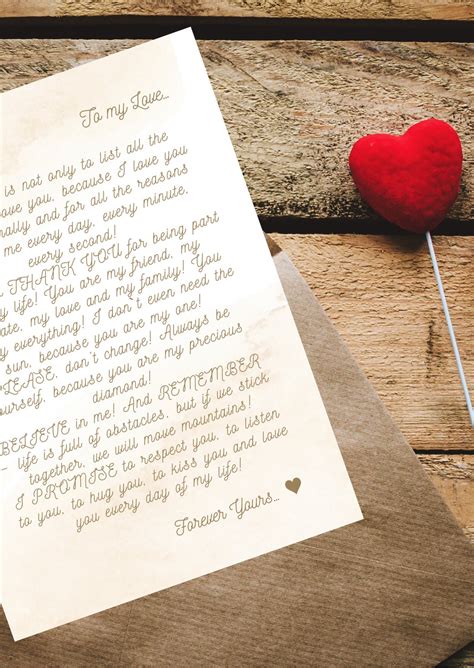 To my Love...
is not only to list all the
ove you, because I love you
nally and for all the reasons
me every day, every minute,
every second!
THANK YOU for being part
y life! You are my friend, my
ate, my love and my family! You
y everything! I don't even need the
sun, because you are my one!
LEASE, don't change! Always be
urself, because you are my precious
diamond!
BELIEVE in me! And REMEMBER
- life is full of obstacles, but if we stick
together, we will move mountains!
I PROMISE to respect you, to listen
to you, to hug you, to kiss you and love
you every day of my life!
Forever Yours...